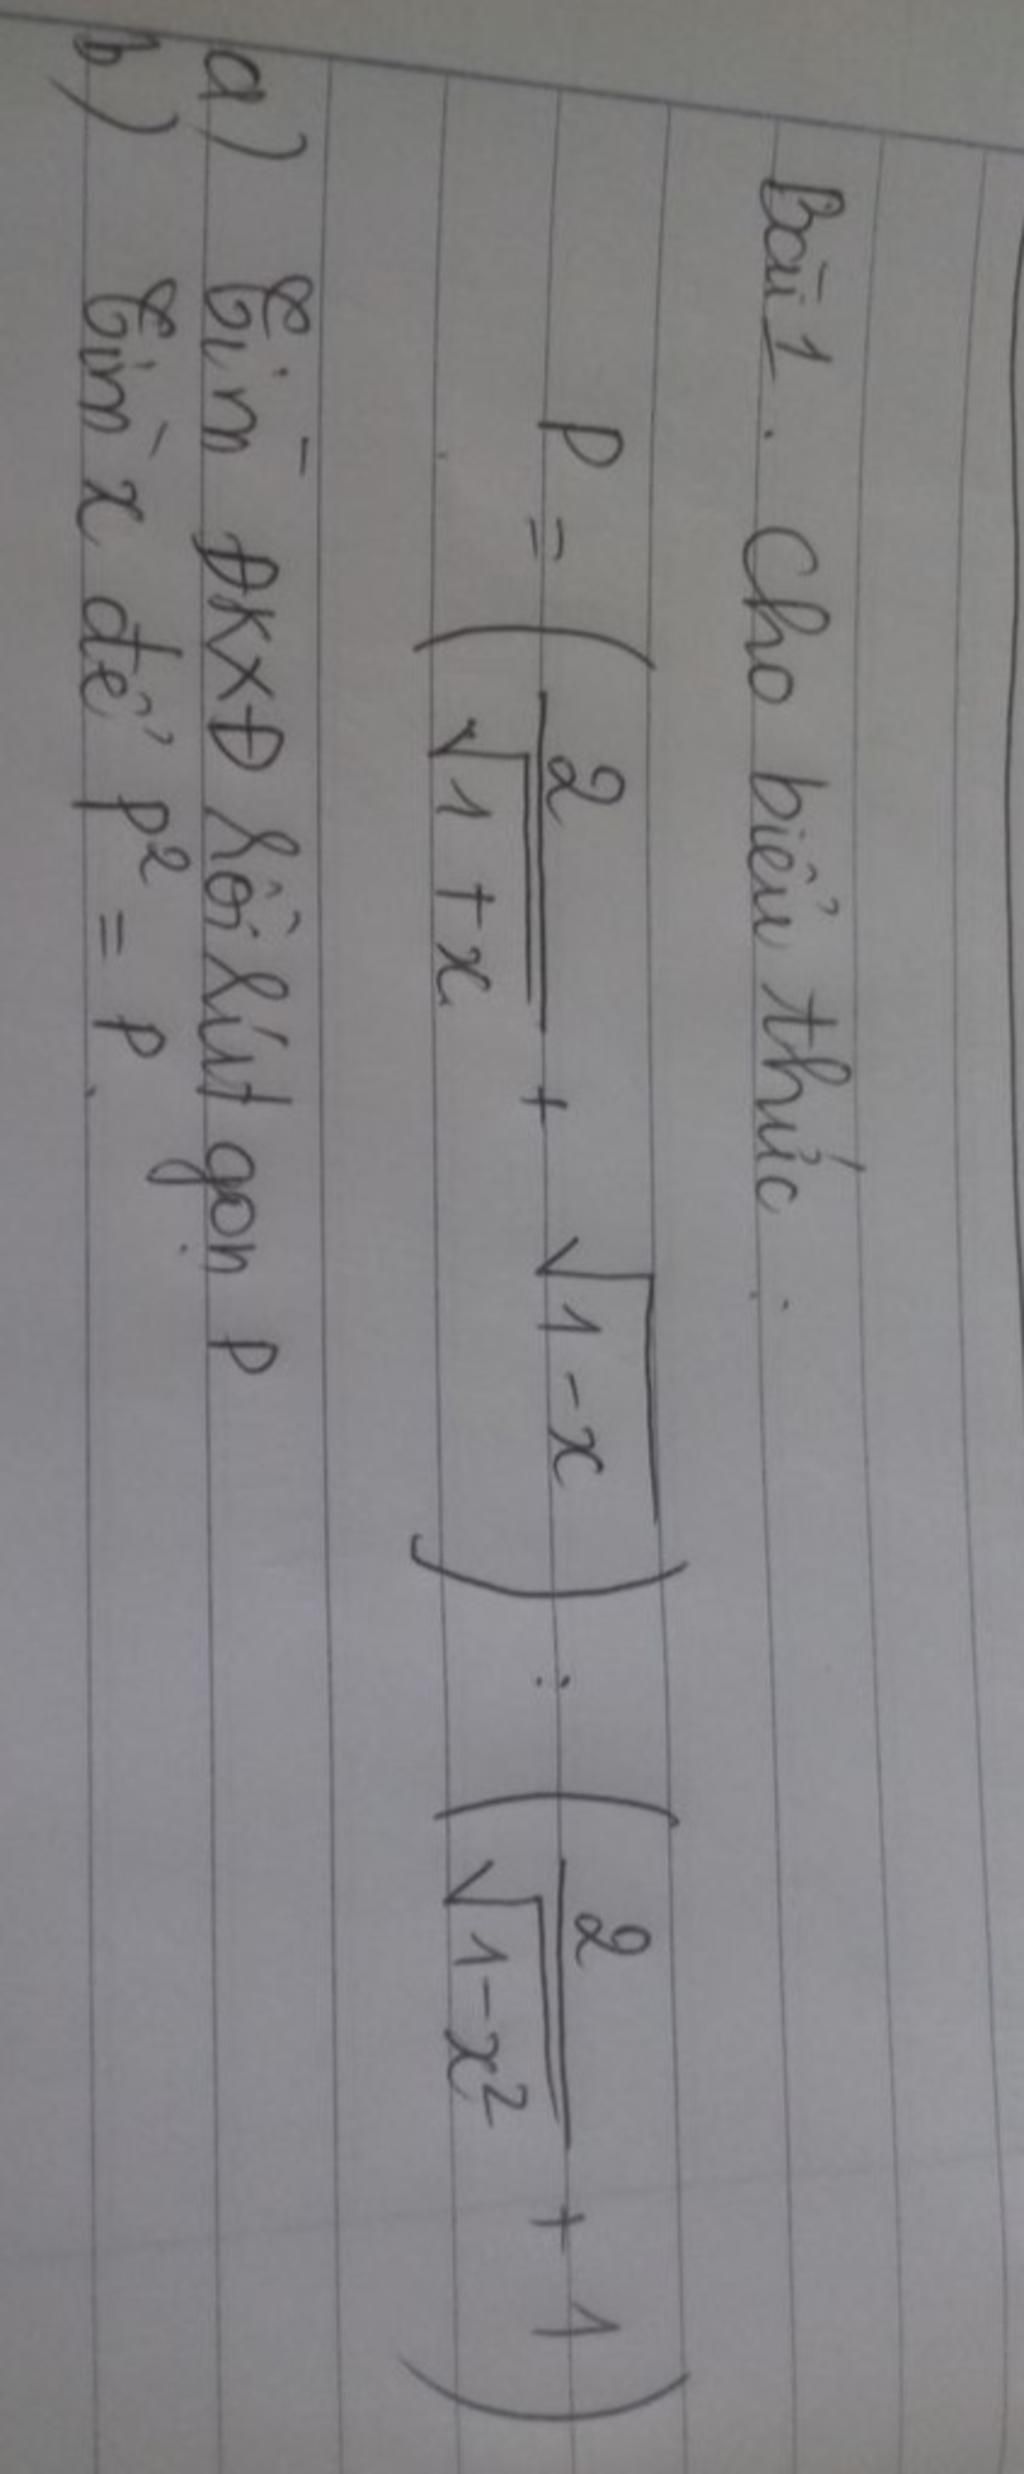 Bài 1. Cho biểu thức:
P = ( 2/√(1+x) + √(1-x) ) : ( 2/√(1-x²) + 1 )
a) Tìm ĐKXĐ rồi rút gọn P
b) Tìm x để P² = P.